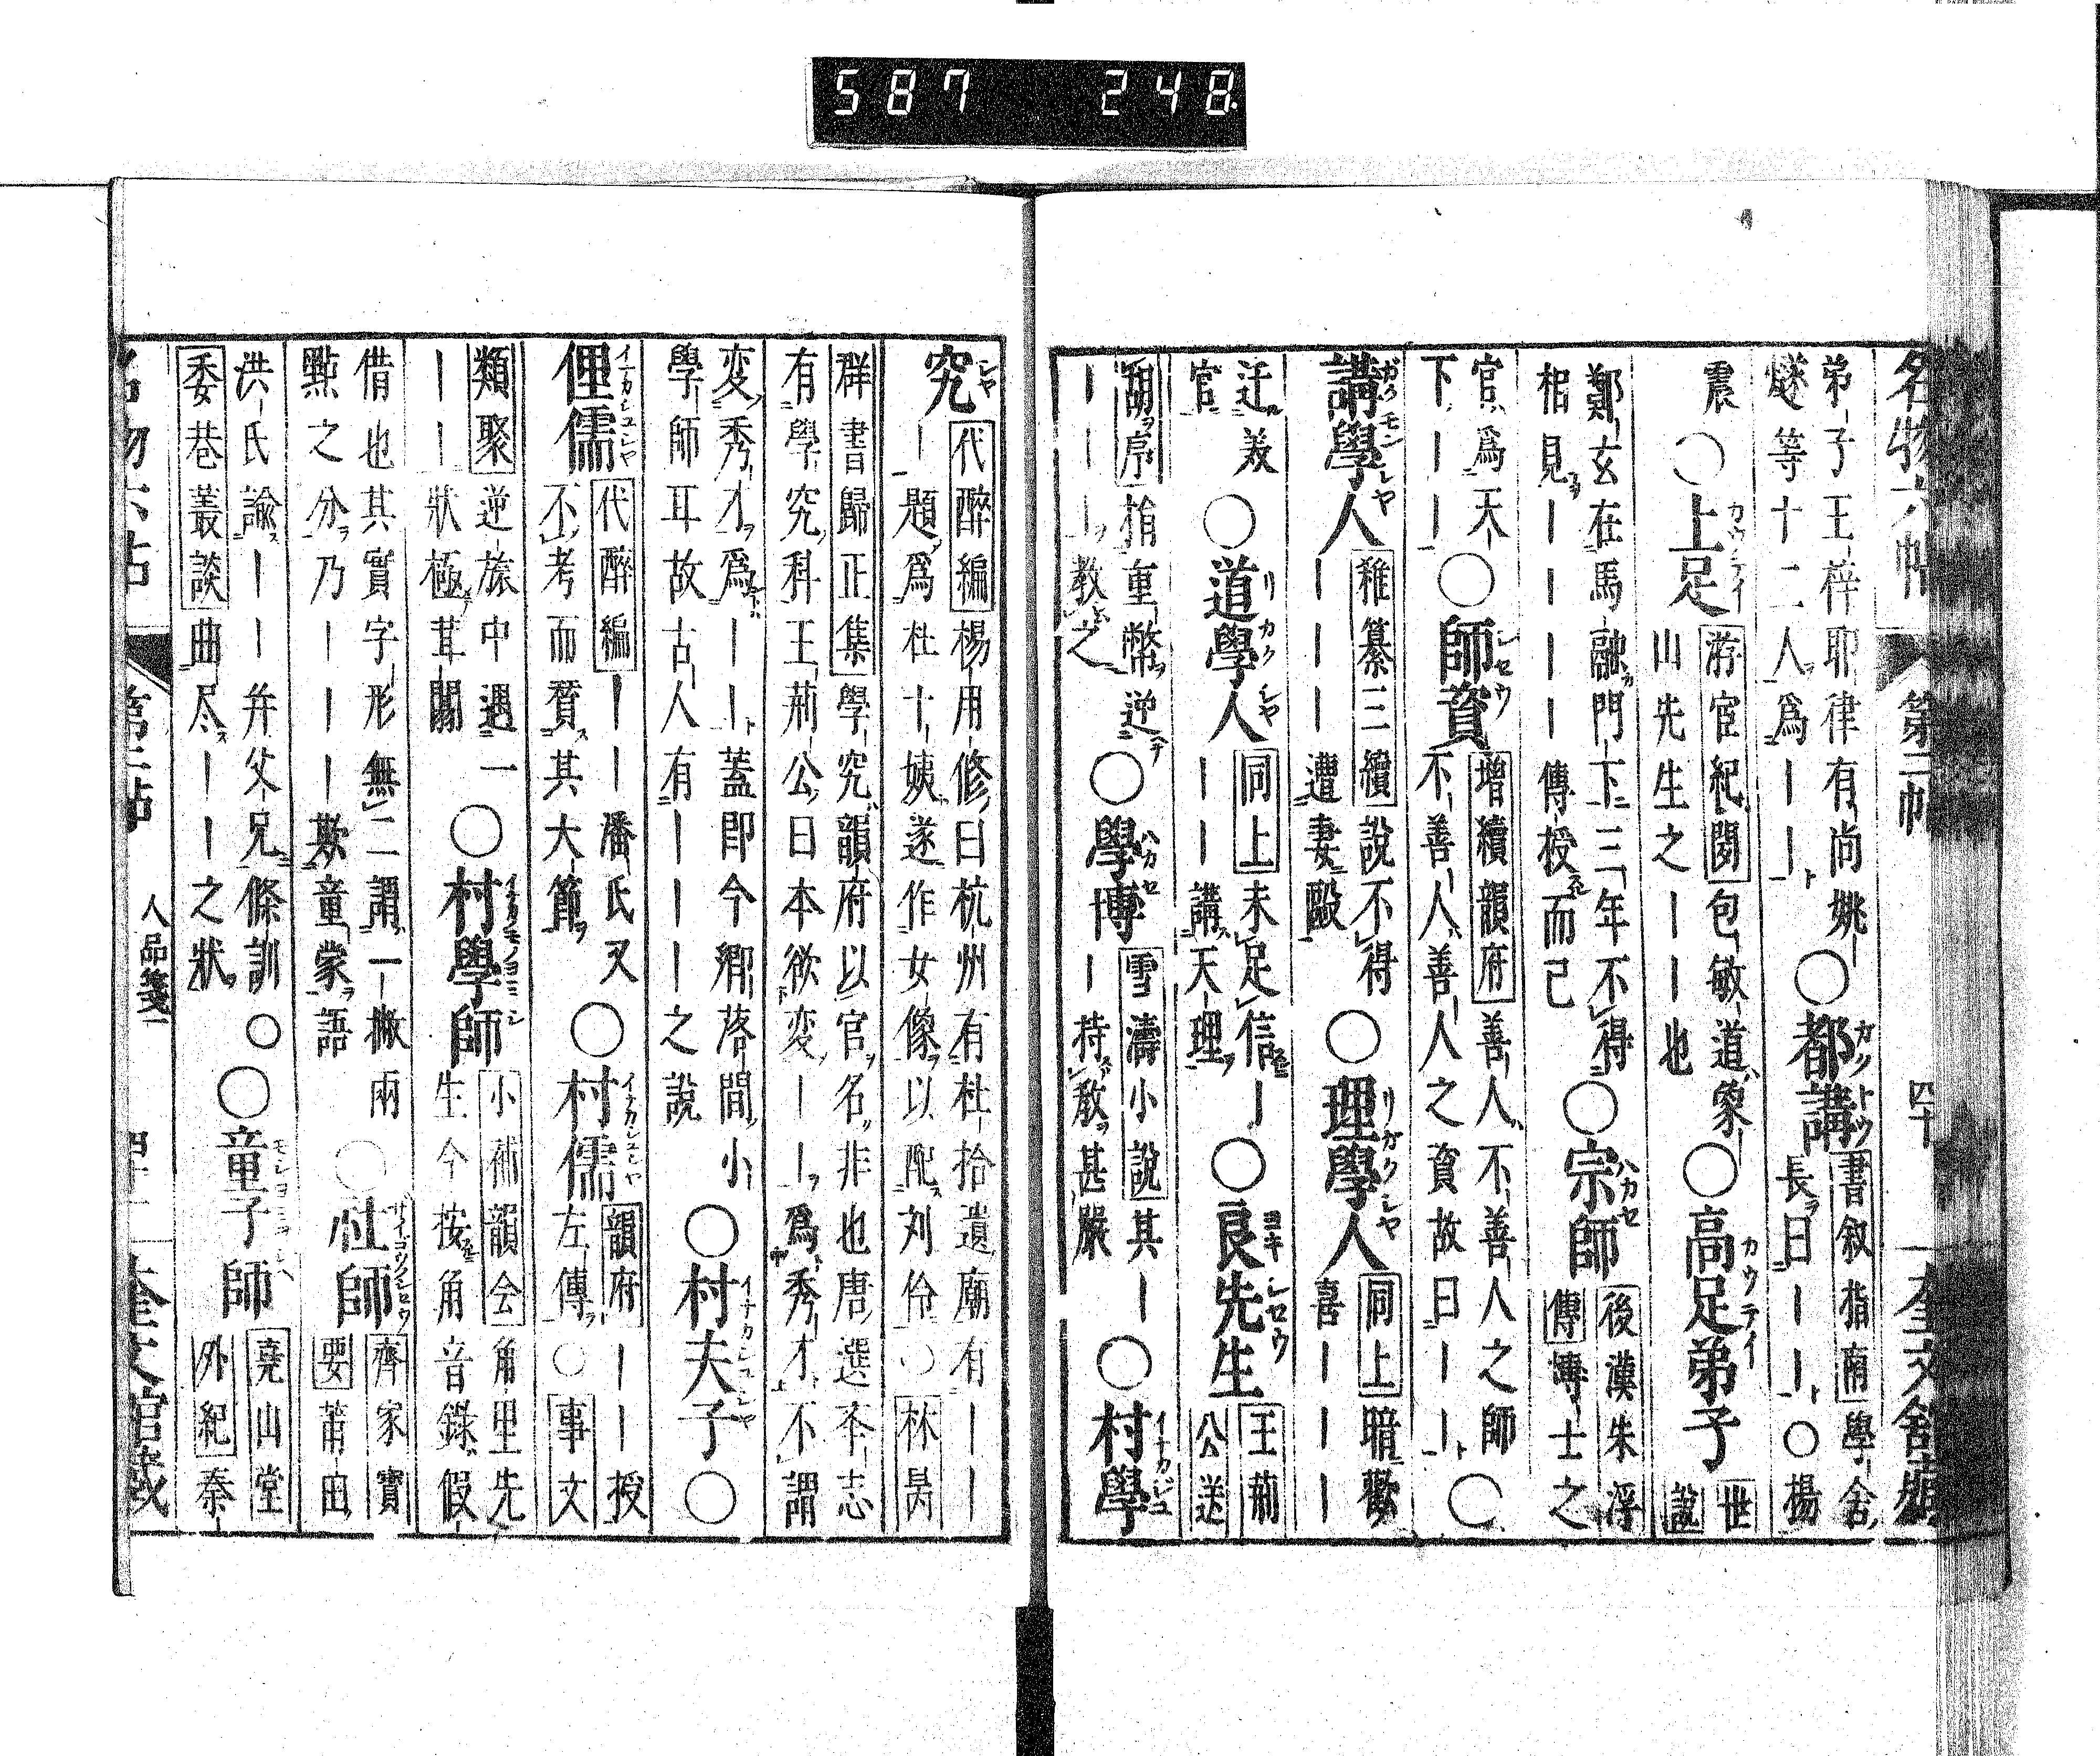 587 248
名物六帖 第二帖 四十 奎文館藏
弟子王梓耶律有尚姚
燧等十二人爲｜｜
○都講
書叙指南學舍
長曰｜｜○楊
震
○上足
游宦紀聞包敏道象
山先生之｜｜也
○高足弟子
世
說
鄭玄在馬融門下三年不得
相見｜｜｜｜傳授而已
○宗師
後漢朱浮
傳博士之
官爲天
下｜｜
○師資
增續韻府善人不善人之師
不善人善人之資故曰｜｜
○
講學人
稚纂三續說不得
｜｜｜遭妻毆
○理學人
同上暗歡
喜｜｜｜
迂羙
官
○道學人
同上未足信｜
｜｜講天理
○良先生
王荊
公送
胡序捐重幣逆
｜｜｜教之
○學博
雪濤小說其｜
｜持教甚嚴
○村學
究
代醉編楊用修曰杭州有杜拾遺廟有｜｜
｜題爲杜十姨遂作女像以配刘伶○林昺
群書歸正集學究韻府以官名非也唐選夲志
有學究科王荊公曰本欲変｜｜爲秀才不謂
変秀才爲｜｜蓋即今鄉落間小
學師耳故古人有｜｜｜之說
○村夫子
○
俚儒
代醉編｜｜潘氏又
不考而贅其大節
○村儒
韻府｜｜授
左傳○事文
類聚逆旅中遇一
｜｜狀極茸闒
○村學師
小補韻会角里先
生今按角音錄假
借也其實字形無二謂一撇兩
㸃之分乃｜｜｜欺童蒙語
○社師
齊家寶
要莆田
洪氏諭｜｜｜弁父兄條訓○
委巷叢談曲尽｜｜之狀
○童子師
堯山堂
外紀秦
名物六帖 第二帖 人品箋一 四十一 奎文館藏